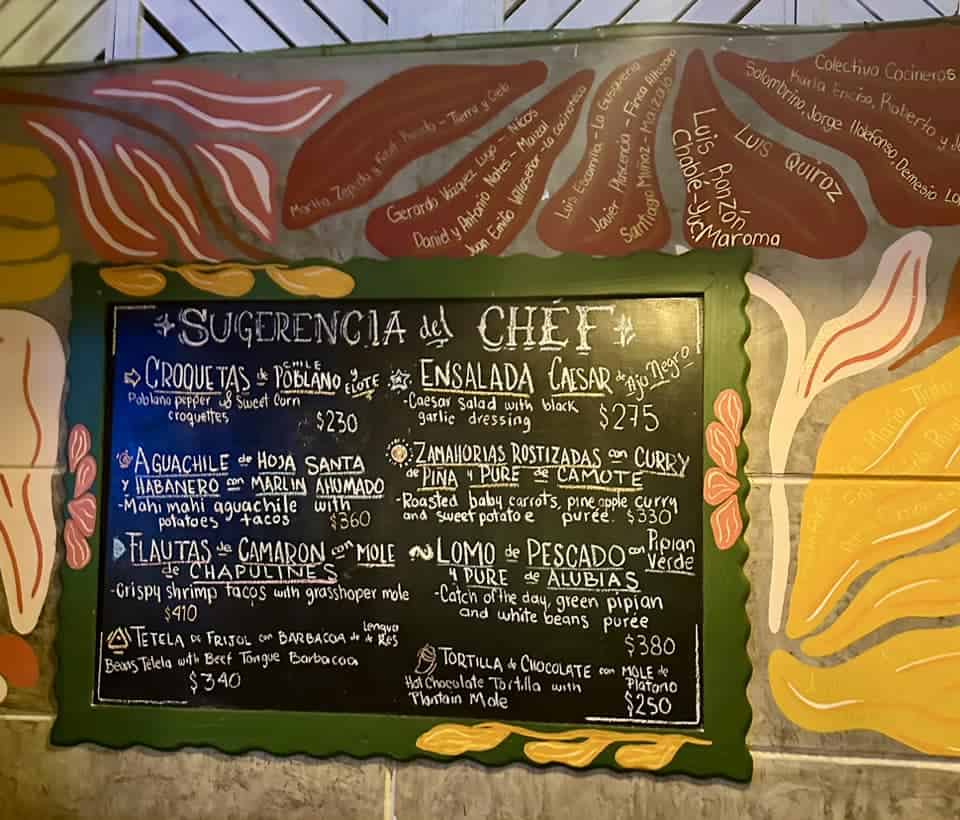 Martha Zepeda y
Tierra y Cielo
Gerardo Vázquez Lugo - Nicos
Daniel y Antonio Nates - Maizal
Juan Emilio Villaseñor - La cocinoteca
Luis Escamilla - La Gusguería
Javier Plascencia - Finca Altozano
Santiago Muñoz - Maizajo
Luis Ronzón
Chablé-yc
Maroma
Luis Quiroz
Colectivo Cocineros
Karla Enciso, Roberto y
Solombrino, Jorge Ildefonso, Demesio
✦SUGERENCIA del CHÉF✦
⇨ CROQUETAS de CHILE POBLANO y ELOTE
Poblano pepper & Sweet Corn
croquettes
$230
AGUACHILE de HOJA SANTA
Y HABANERO con MARLIN AHUMADO
-Mahi mahi aguachile with
potatoes tacos $360
FLAUTAS de CAMARON con MOLE
de CHAPULINES
-Crispy shrimp tacos with grasshoper mole
$410
TETELA DE FRIJOL con BARBACOA de Lengua de Res
Beans Telela with Beef Tongue Barbacoa
$340
ENSALADA CAESAR de Ajo Negro
-Caesar salad with black
garlic dressing $275
ZANAHORIAS ROSTIZADAS con CURRY
de PIÑA y PURE de CAMOTE
-Roasted baby carrots, pineapple curry
and sweet potatoe purée. $330
LOMO de PESCADO con Pipian Verde
y PURE de ALUBIAS
-Catch of the day, green pipian
and white beans purée
$380
TORTILLA de CHOCOLATE con MOLE de
Platano
Hot Chocolate Tortilla with
Plantain Mole
$250